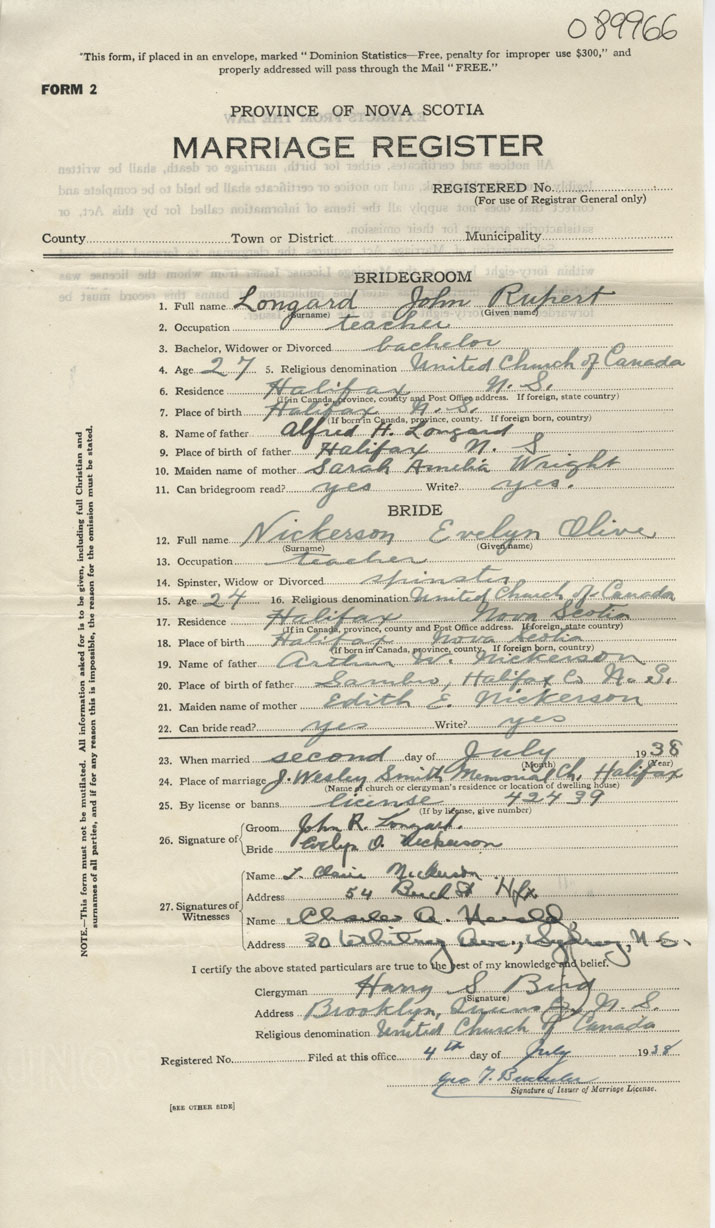 089966
"This form, if placed in an envelope, marked "Dominion Statistics—Free, penalty for improper use $300," and
properly addressed will pass through the Mail "FREE."
FORM 2
PROVINCE OF NOVA SCOTIA
MARRIAGE REGISTER
REGISTERED No.
(For use of Registrar General only)
County Town or District Municipality
BRIDEGROOM
1. Full name Longard John Rupert
(Surname) (Given name)
2. Occupation teacher
3. Bachelor, Widower or Divorced bachelor
4. Age 27 5. Religious denomination United Church of Canada
6. Residence Halifax N. S.
(If in Canada, province, county and Post Office address. If foreign, state country)
7. Place of birth Halifax N. S.
(If born in Canada, province, county. If foreign born, country)
8. Name of father Alfred H. Longard
9. Place of birth of father Halifax N. S
10. Maiden name of mother Sarah Amelia Wright
11. Can bridegroom read? yes Write? yes.
BRIDE
12. Full name Nickerson Evelyn Olive
(Surname) (Given name)
13. Occupation teacher
14. Spinster, Widow or Divorced spinster
15. Age 24 16. Religious denomination United Church of Canada
17. Residence Halifax Nova Scotia
(If in Canada, province, county and Post Office address. If foreign, state country)
18. Place of birth Halifax Nova Scotia
(If born in Canada, province, county. If foreign born, country)
19. Name of father Arthur W. Nickerson
20. Place of birth of father Sambro, Halifax Co N. S.
21. Maiden name of mother Edith E. Nickerson
22. Can bride read? yes Write? yes
23. When married second day of July 1938
(Month) (Year)
24. Place of marriage J. Wesley Smith Memorial Ch. Halifax
(Name of church or clergyman's residence or location of dwelling house)
25. By license or banns license 42439
(If by license, give number)
26. Signature of Groom John R. Longard.
Bride Evelyn O. Nickerson
27. Signatures of Witnesses
Name Claire Nickerson
Address 54 Hfx
Name Charles A. Herald
Address 30 Whitney Ave., Sydney, N. S.
I certify the above stated particulars are true to the best of my knowledge and belief.
Clergyman Harry S. Bird
(Signature)
Address Brooklyn, Queens Co, N. S.
Religious denomination United Church of Canada
Registered No. Filed at this office 4th day of July 1938
Geo T.
Signature of Issuer of Marriage License.
[SEE OTHER SIDE]
NOTE.—This form must not be mutilated. All information asked for is to be given, including full Christian and
surnames of all parties, and if for any reason this is impossible, the reason for the omission must be stated.